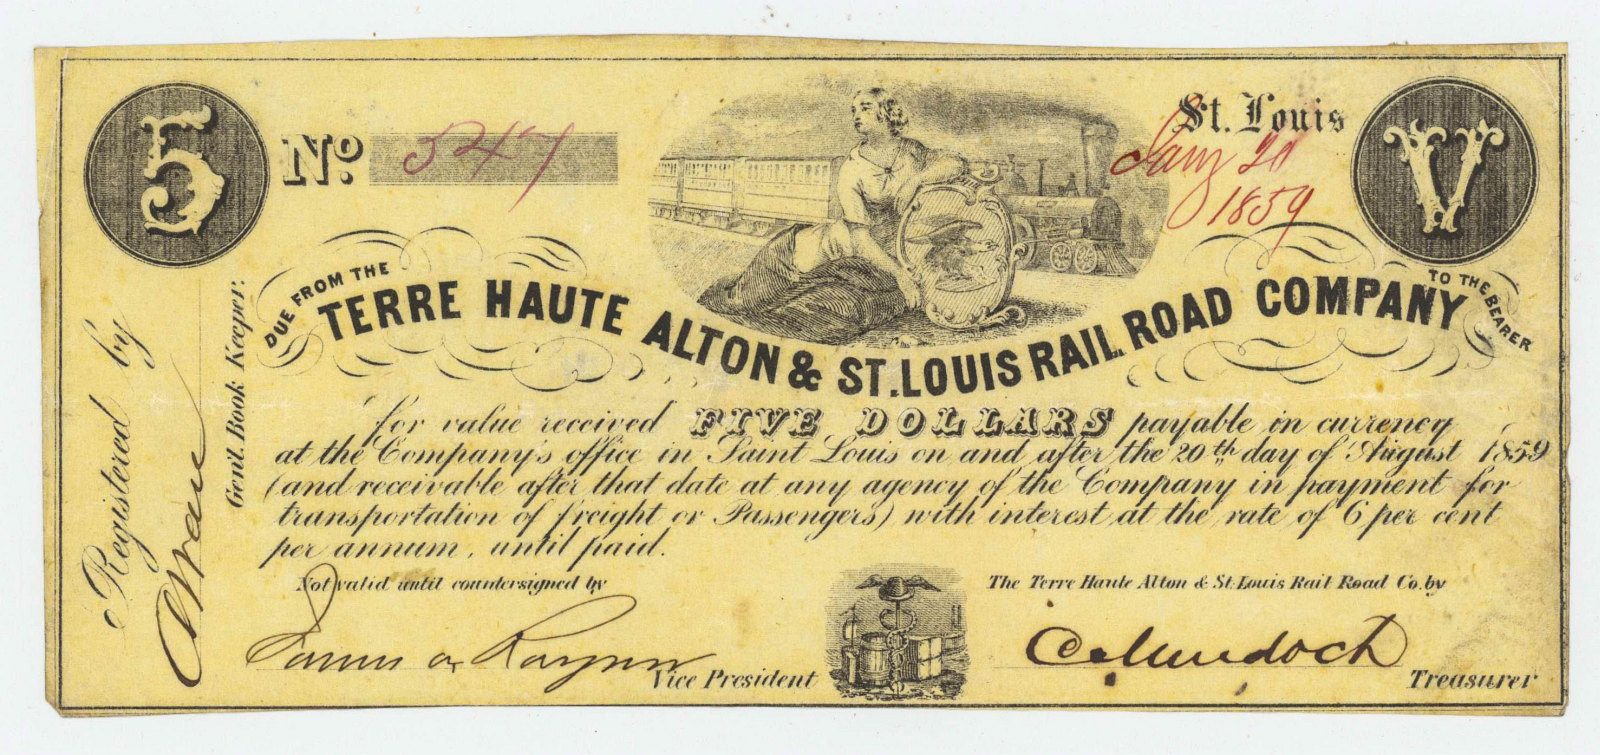 5
No. 547
St. Louis
Jany 20
1859
V
DUE FROM THE
TERRE HAUTE ALTON & ST. LOUIS RAIL ROAD COMPANY
TO THE BEARER
for value received FIVE DOLLARS payable in currency
at the Company's office in Saint Louis on and after the 20th day of August 1859
(and receivable after that date at any agency of the Company in payment for
transportation of freight or Passengers) with interest at the rate of 6 per cent
per annum, until paid.
Not valid until countersigned by
The Terre Haute Alton & St. Louis Rail Road Co. by
Vice President
Murdoch
Treasurer
Registered by
Genl. Book Keeper.